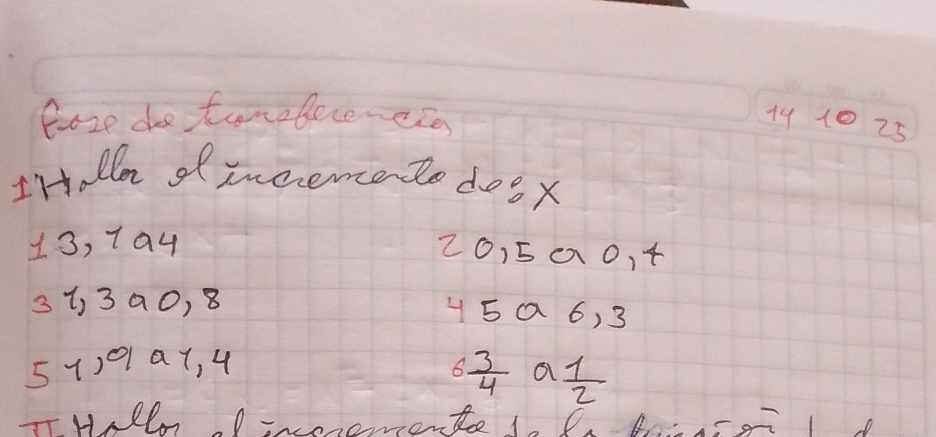 Fase de transferencia
14 10 25
1 Hallar el incremento de: x
1 3,1 a 4
2 0,5 a 0,7
3 1,3 a 0,8
4 5 a 6,3
5 1,9 a 1,4
6 3/4 a 1/2
II Hallar el incremento de la función